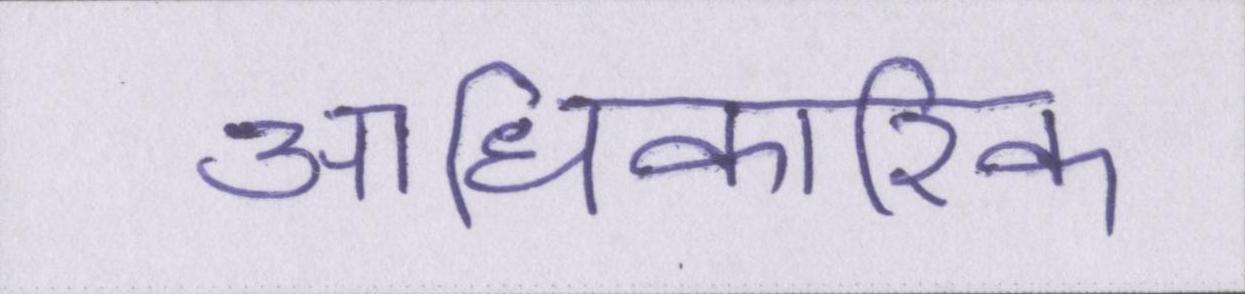 आधिकारिक